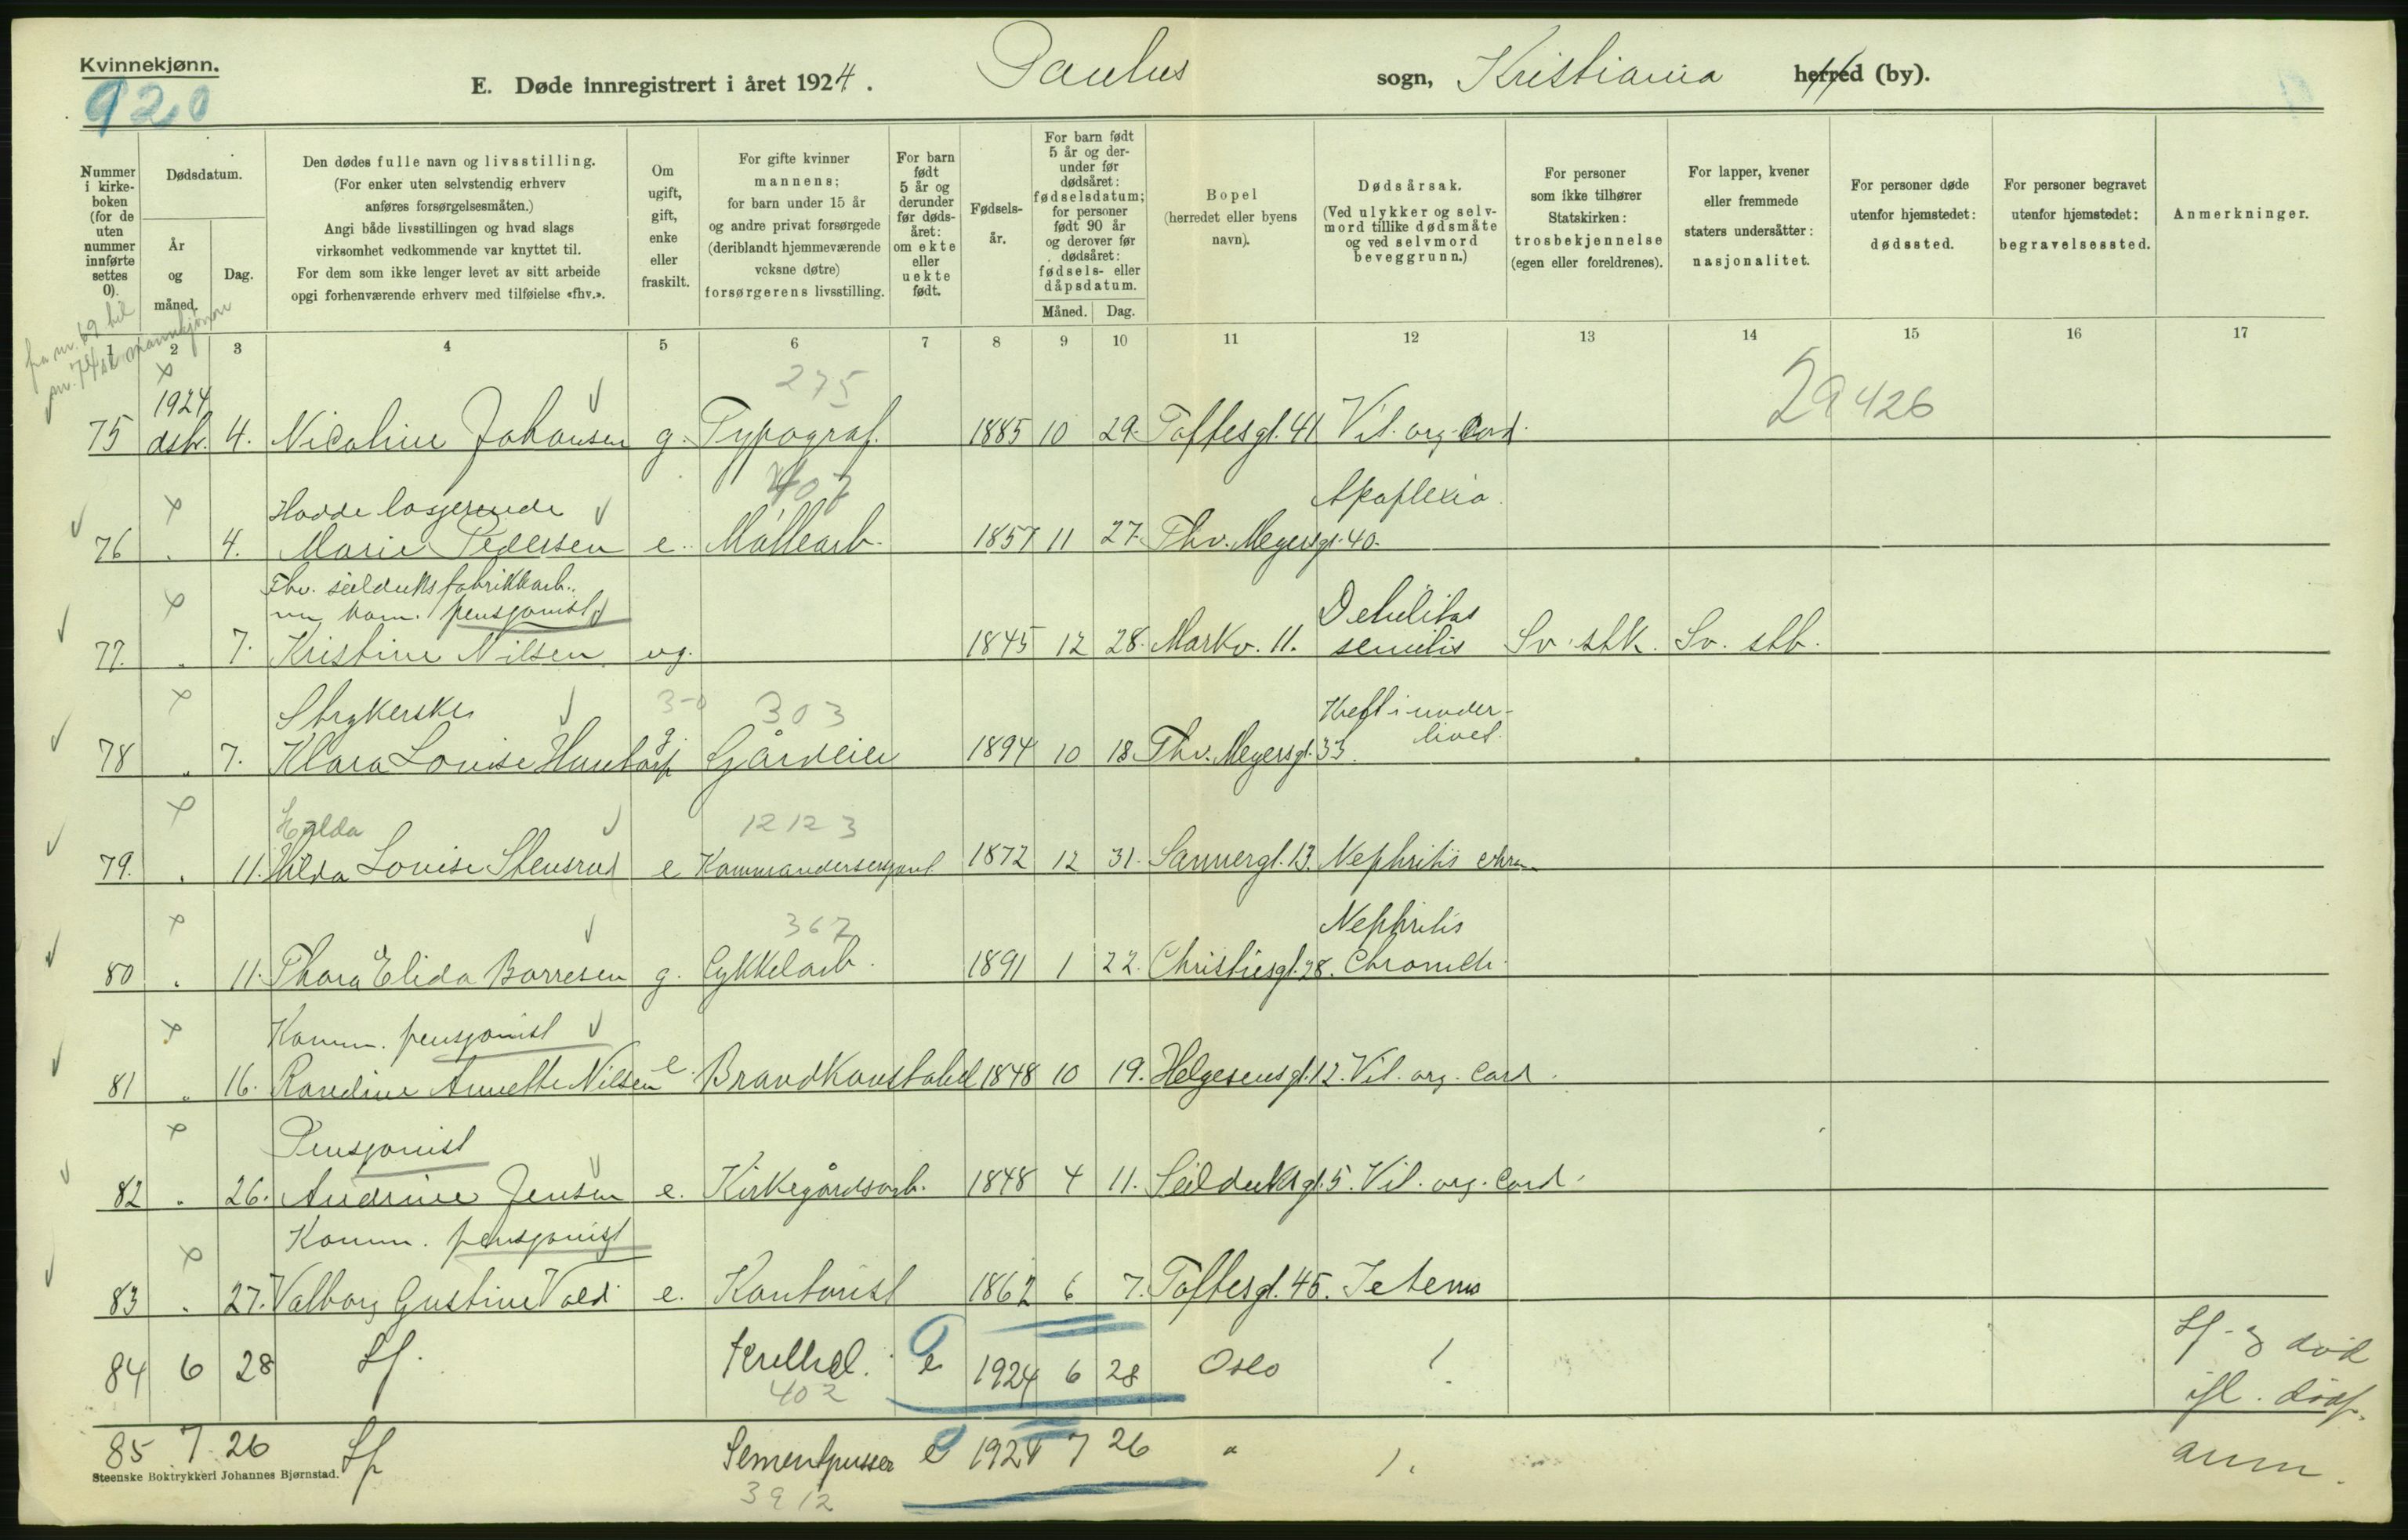 Kvinnekjønn.
920
E. Døde innregistrert i året 1924. Paulus sogn, Kristiania herred (by).
Nummer i kirkeboken (for de uten nummer innførte settes 0).
Dødsdatum.
År og måned.
Dag.
Den dødes fulle navn og livsstilling.
(For enker uten selvstendig erhverv
anføres forsørgelsesmåten.)
Angi både livsstillingen og hvad slags
virksomhet vedkommende var knyttet til.
For dem som ikke lenger levet av sitt arbeide
opgi forhenværende erhverv med tilføielse «fhv.».
Om ugift, gift, enke eller fraskilt.
For gifte kvinner
mannens;
for barn under 15 år
og andre privat forsørgede
(deriblandt hjemmeværende
voksne døtre)
forsørgerens livsstilling.
For barn født 5 år og derunder før dødsåret: om ekte eller uekte født.
Fødselsår.
For barn født 5 år og derunder før dødsåret: fødselsdatum; for personer født 90 år og derover før dødsåret: fødsels- eller dåpsdatum.
Måned. Dag.
Bopel
(herredet eller byens navn).
Dødsårsak.
(Ved ulykker og selvmord tillike dødsmåte og ved selvmord beveggrunn.)
For personer som ikke tilhører Statskirken: trosbekjennelse (egen eller foreldrenes).
For lapper, kvener eller fremmede staters undersåtter: nasjonalitet.
For personer døde utenfor hjemstedet: dødssted.
For personer begravet utenfor hjemstedet: begravelsessted.
Anmerkninger.
fra nr. 69 til
nr. 74 mannkjønn
1 2 3 4 5 6 7 8 9 10 11 12 13 14 15 16 17
1924 275 29426
75 dsbr. 4. Nicoline Johansen g. Typograf. 1885 10 29. Toftesgt. 41 Vit. org. Cord.
Hadde losjerende 407 Apoplexia.
76 . 4. Marie Pedersen e. Møllearb. 1857 11 27. Thv. Meyersgt. 40.
Fhv. seilduksfabrikkarb.
nu kom. pensjonist Debilitas
77. . 7. Kristine Nilsen ug. 1845 12 28. Markv. 11. senilis Sv. stk. Sv. stb.
Strykerske 3-0 303 Kreft i under-
78 . 7. Klara Louise g. Gårdeier 1894 10 18. Thv. Meyersgt. 33. livet.
Hilda 12 12 3
79. . 11. Hilda Louise Stensrud e Kommandersersjant 1872 12 31. Sannergt. 13. Nephritis chron.
367 Nephritis
80 . 11. Thora Elida Borresen g. Cykkelarb. 1891 1 22. Christiesgt. 28. Chronich.
Komm. pensjonist
81 . 16. Randine Annette Nilsen e. Brandkonstabel 1848 10 19. Helgesensgt. 12. Vit. org. Cord.
Pensjonist
82 . 26. Andrine Jensen e. Kirkegårdsarb. 1848 4 11. Seilduksgt. 5. Vit. org. Cord.
Komm. pensjonist
83 . 27. Valborg Gustine Vold e. Kontorist 1862 6 7. Toftesgt. 45. Icterus
84 6 28 Df. e 1924 6 28 Oslo 1
402
85 7 26 Df Sementpusser e 1924 7 26 " 1.
3912
Df. og død
ifl. dødf.
anm.
Steenske Boktrykkeri Johannes Bjørnstad.